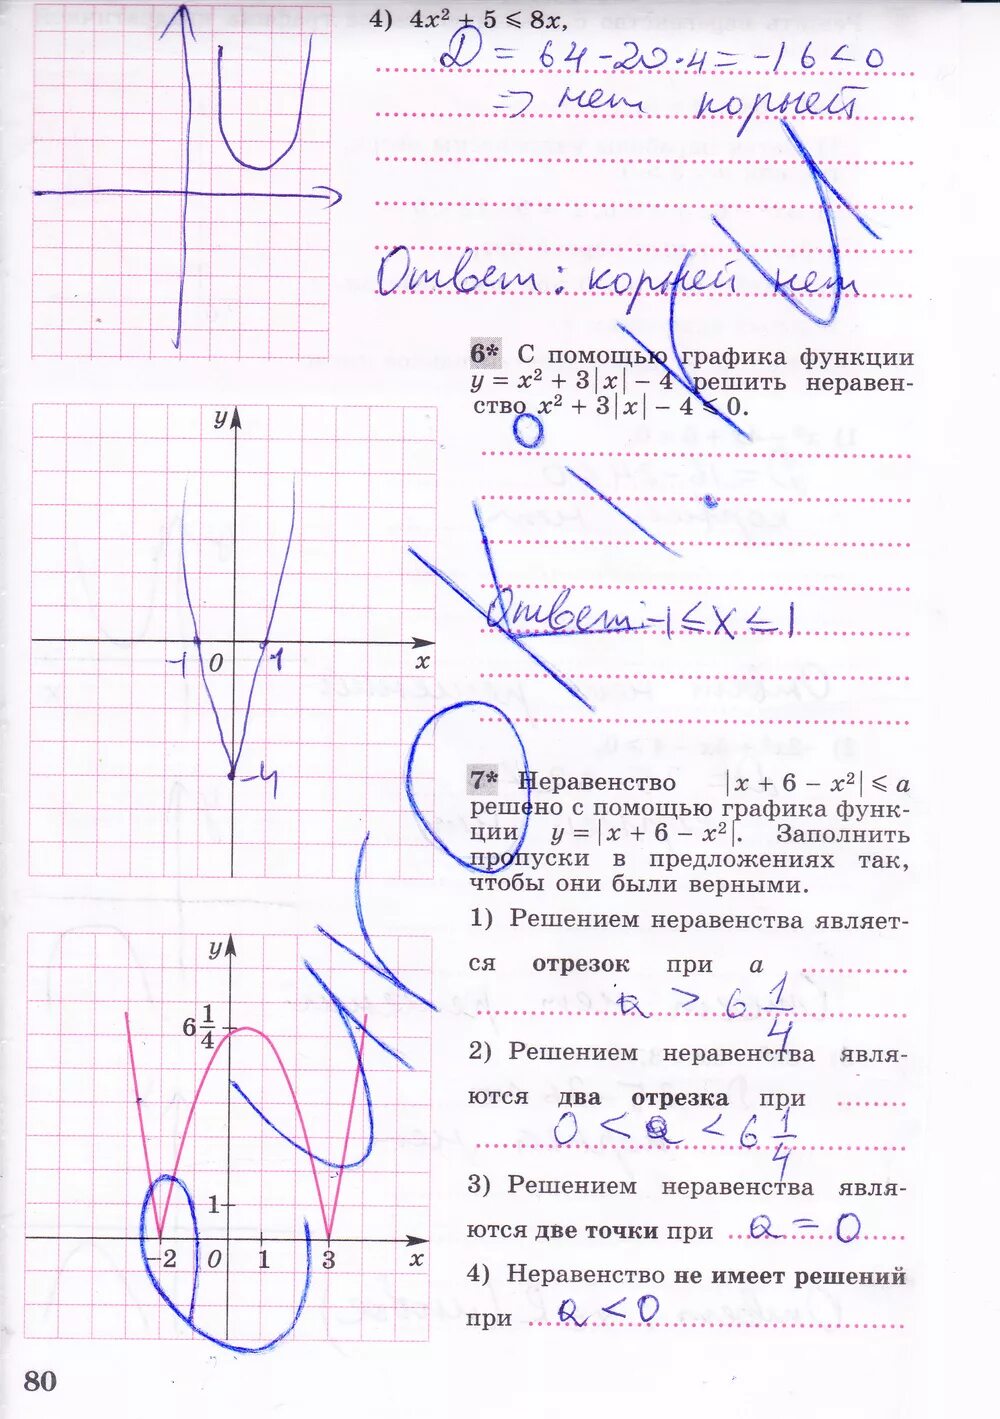 4) 4x² + 5 ⩽ 8x,
D = 64 - 20·4 = -16 < 0
=> нет корней
Ответ: корней нет
6* С помощью графика функции
y = x² + 3|x| − 4 решить неравен-
ство x² + 3|x| − 4 ⩽ 0.
y
-1 0 1 x
-4
Ответ: -1 ≤ x ≤ 1
7* Неравенство |x + 6 − x²| ⩽ a
решено с помощью графика функ-
ции y = |x + 6 − x²|. Заполнить
пропуски в предложениях так,
чтобы они были верными.
1) Решением неравенства являет-
ся отрезок при a
a > 6 1/4
2) Решением неравенства явля-
ются два отрезка при
0 < a < 6 1/4
3) Решением неравенства явля-
ются две точки при a = 0
4) Неравенство не имеет решений
при a < 0
y
6 1/4
1
−2 0 1 3 x
80